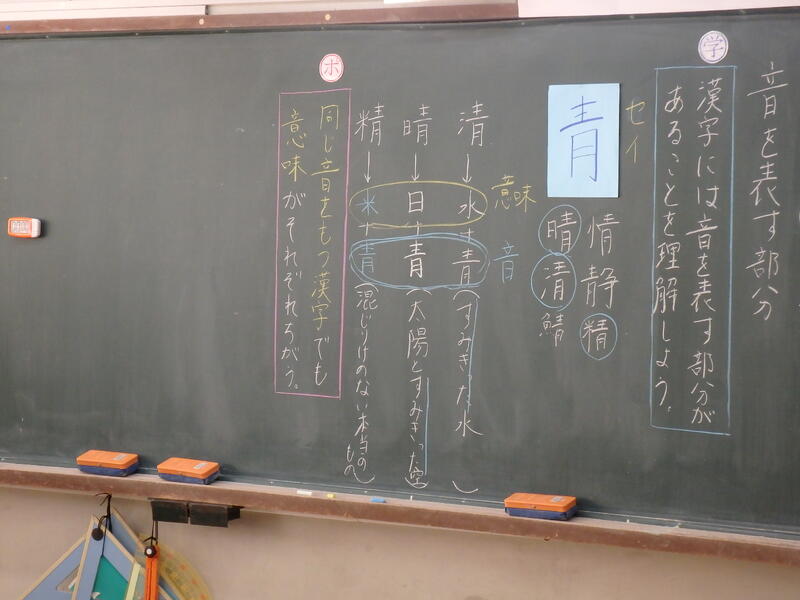 音を表す部分
学
漢字には音を表す部分が
あることを理解しよう。
セイ
青
情 静 精
晴 清 鯖
意味
音
清→水+青(すみきった水)
晴→日+青(太陽とすみきった空)
精→米+青(混じりけのない本当のもの)
ポ
同じ音をもつ漢字でも
意味がそれぞれちがう。